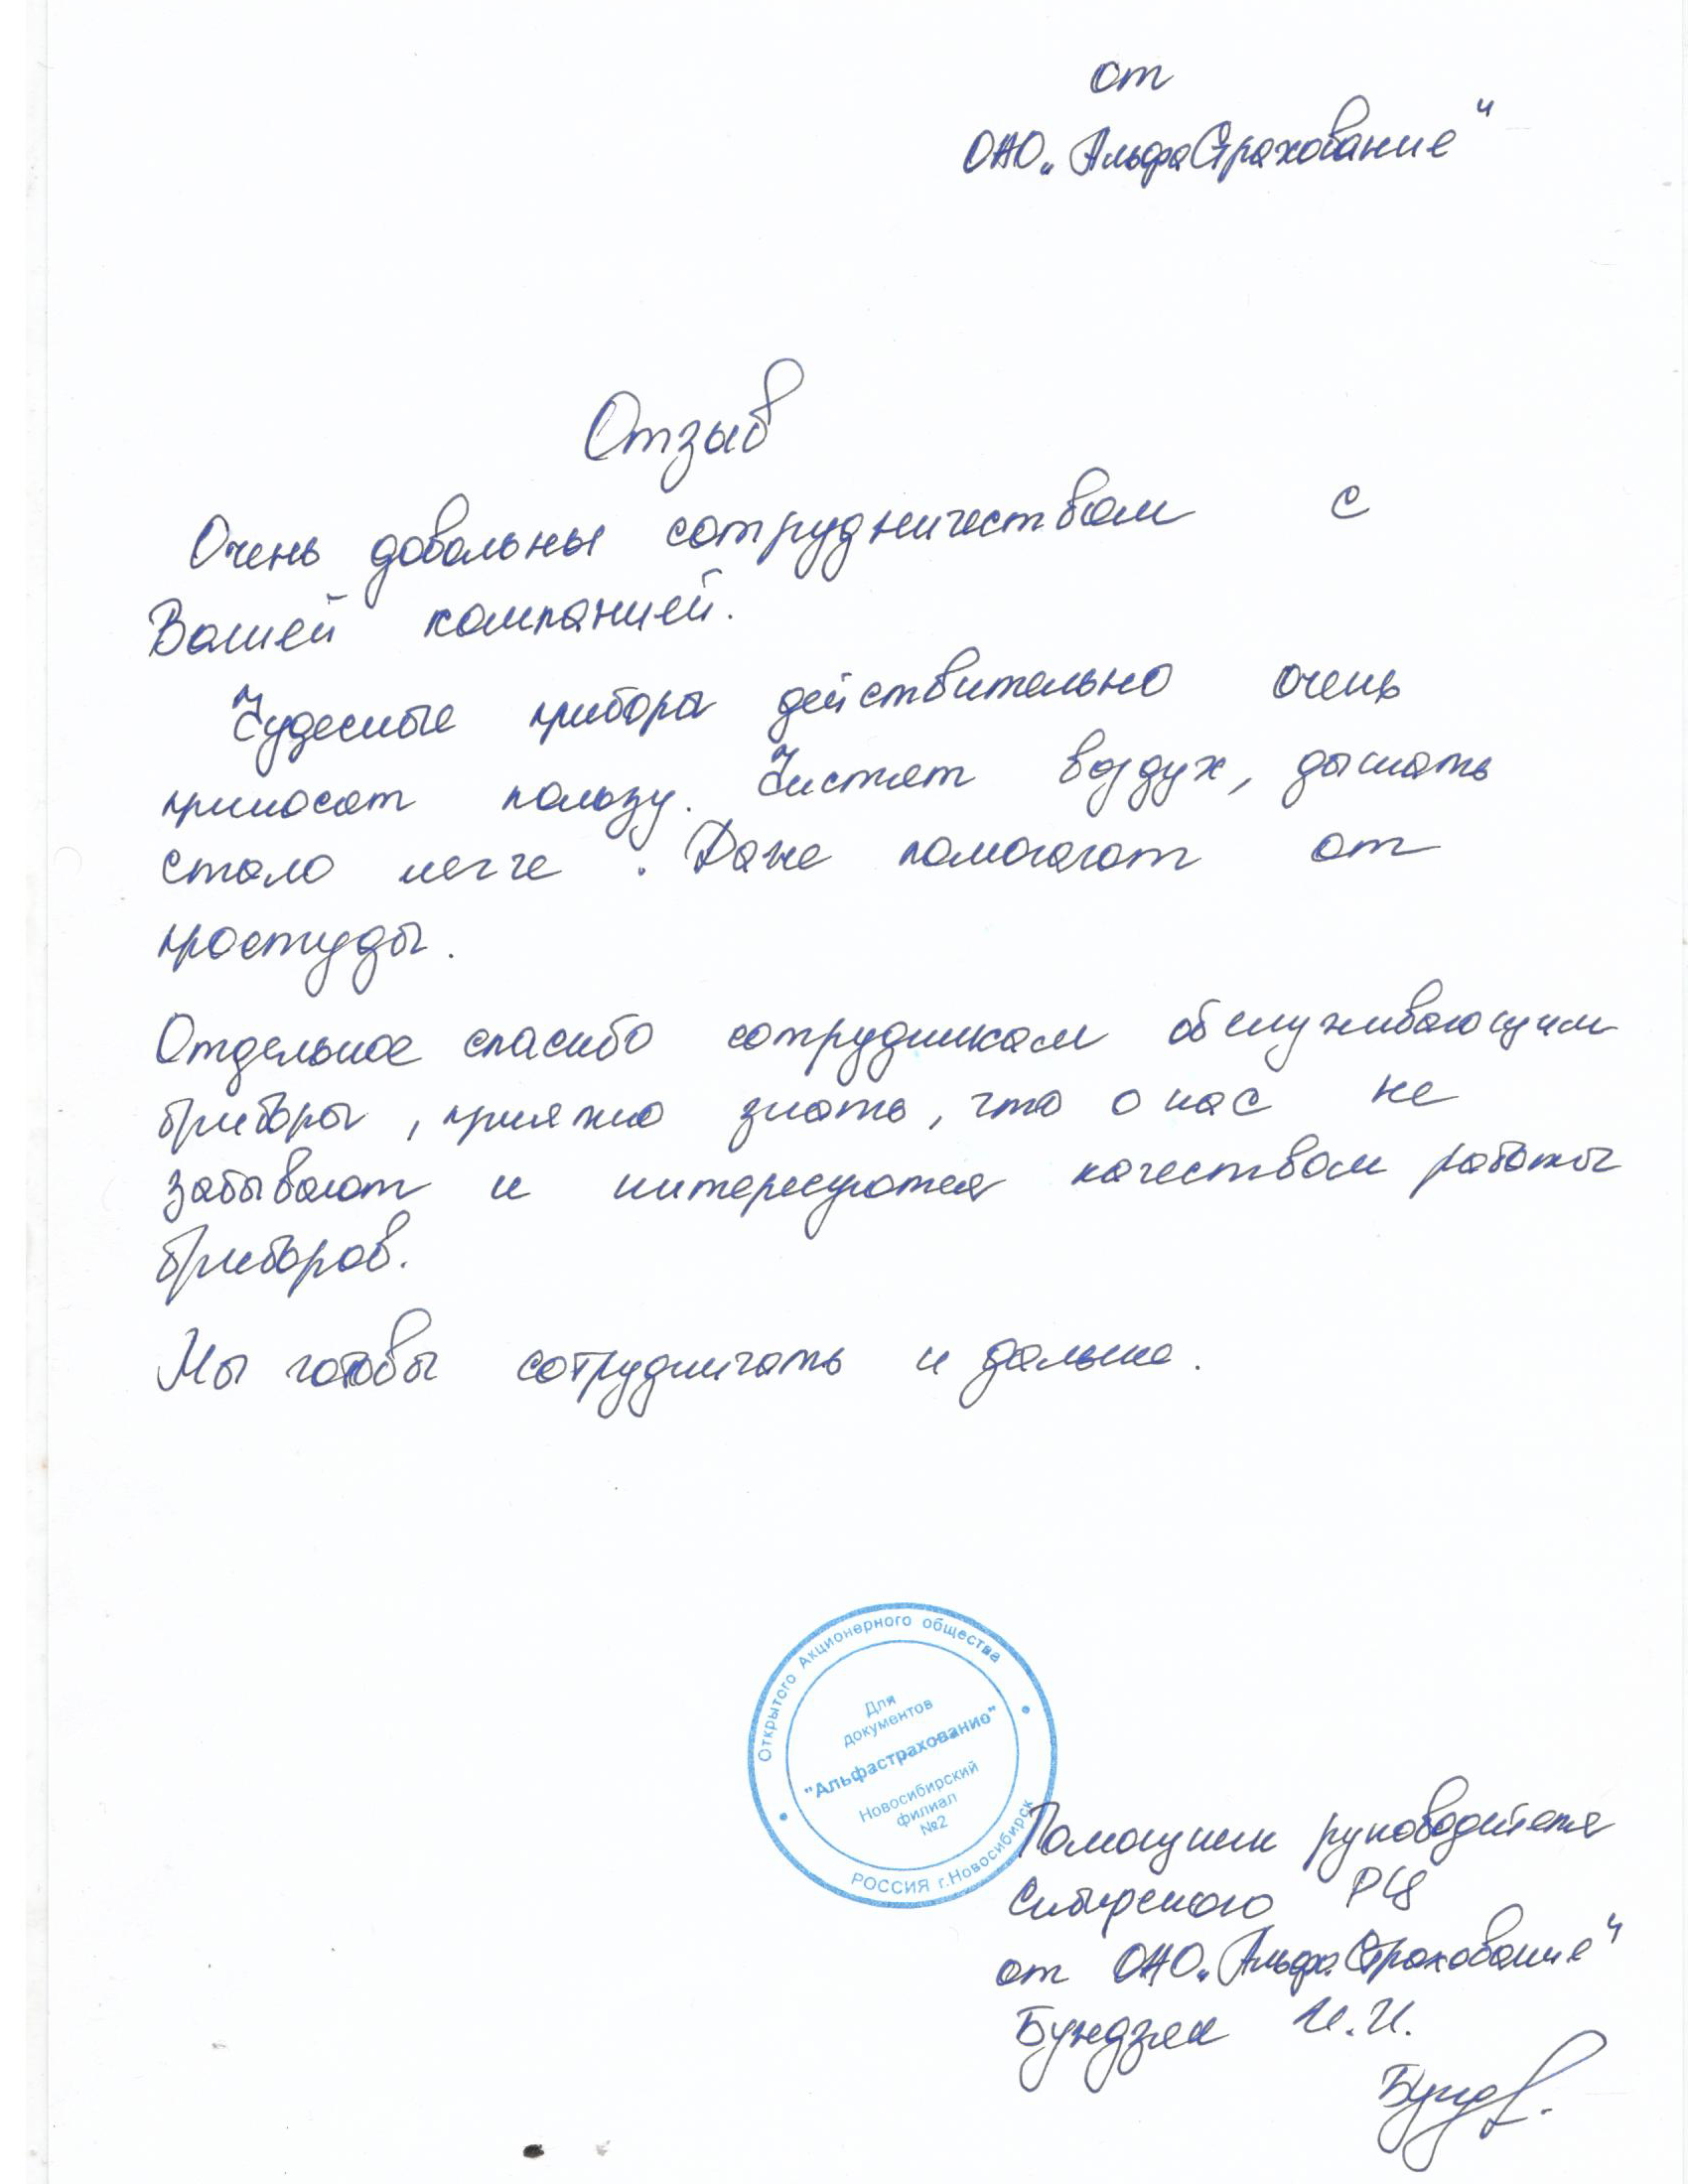 от
ОАО „АльфаСтрахование"
Отзыв
Очень довольны сотрудничеством с
Вашей компанией.
Чудесные прибора действительно очень
приносят пользу. Чистят воздух, дышать
стало легче. Даже помогают от
простуды.
Отдельное спасибо сотрудникам обслуживающим
приборы, приятно знать, что о нас не
забывают и интересуются качеством работы
приборов.
Мы готовы сотрудничать и дальше.
Открытого Акционерного общества
Для
документов
"Альфастрахование"
Новосибирский
филиал
№2
РОССИЯ г.Новосибирск
Помощник руководителя
Сибирского РЦ
от ОАО „АльфаСтрахование"
И.И.